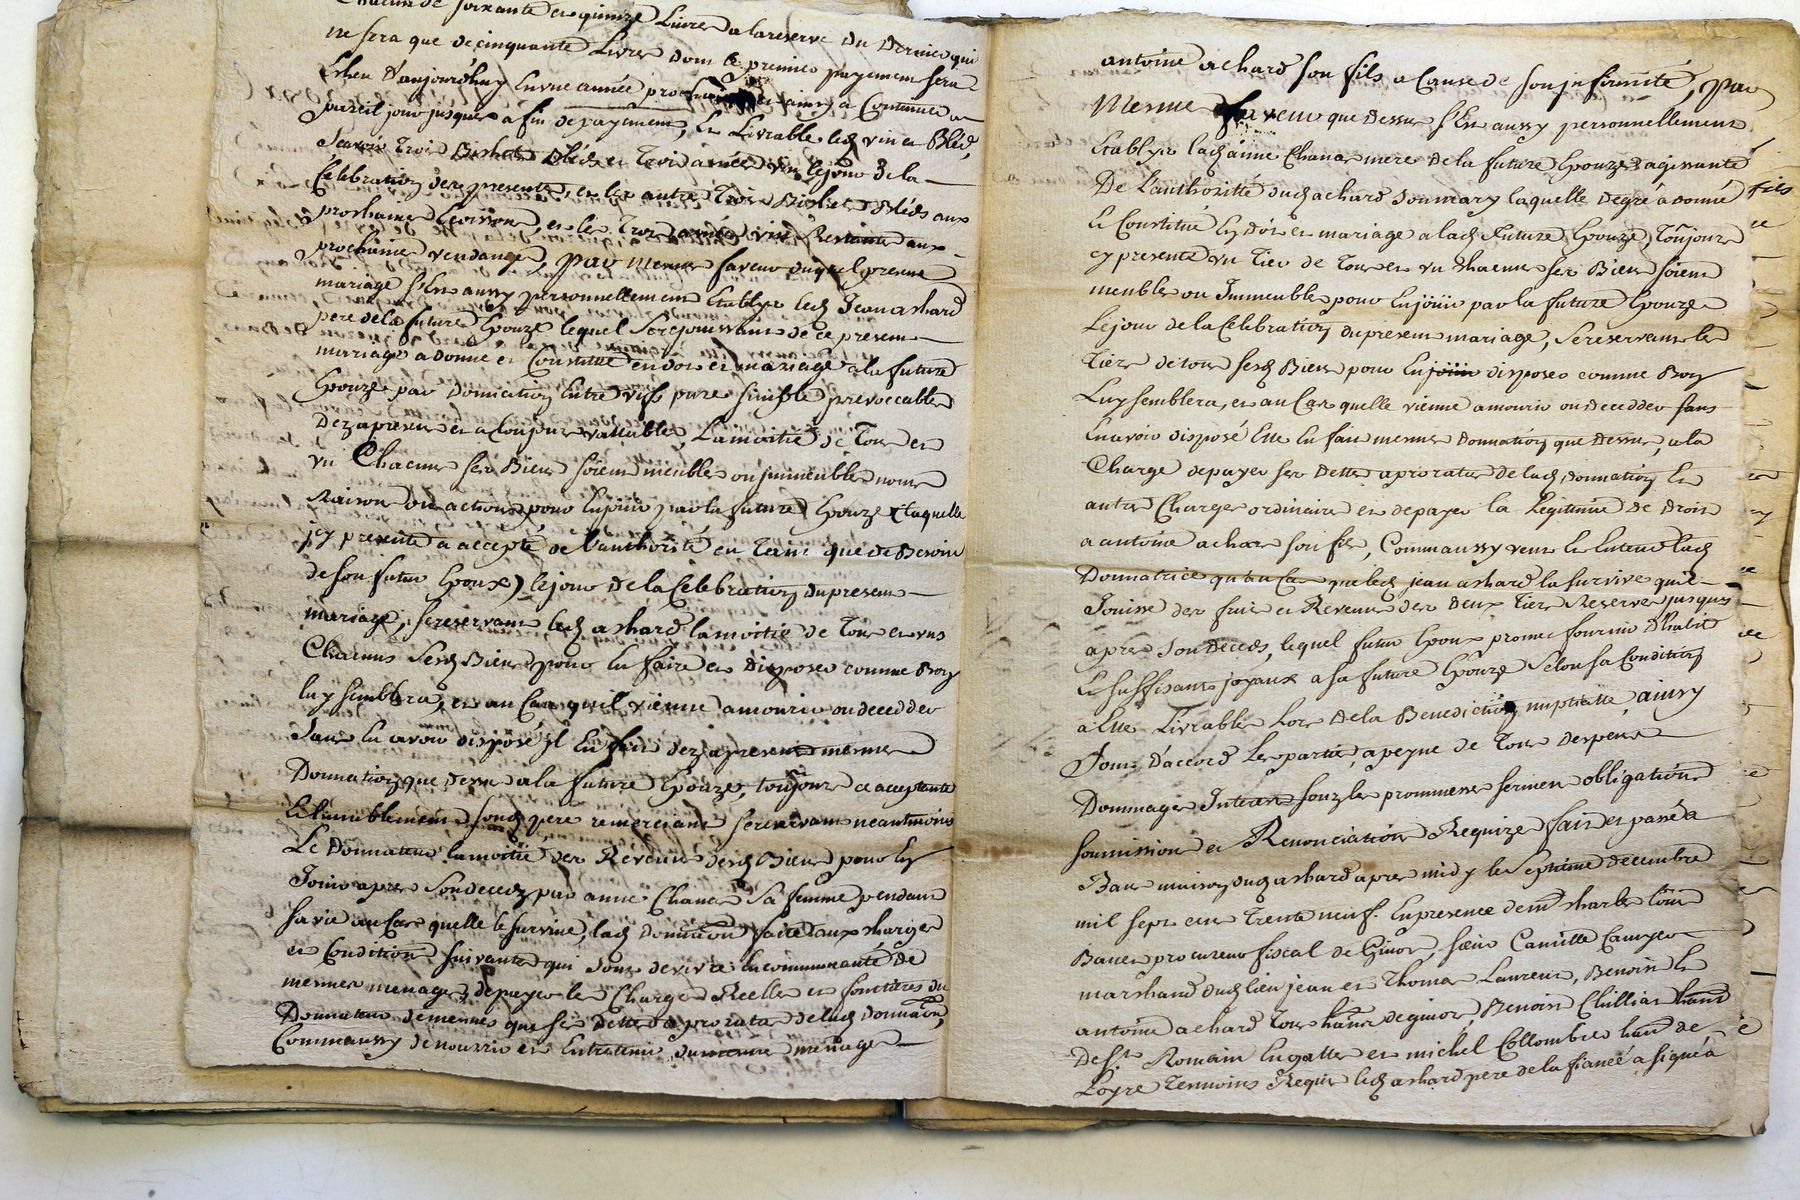 Chacun de soixante et quinze Livres a la reserve du dernier qui
ne sera que de cinquante Livres dont le premier payement sera
Escheu d'aujourdhuy En une année prochaine et ainsy a Continuer a
pareil jour jusques a fin de payement, Et Livrable lesd vin et Bled,
Scavoir Trois Bichets Bled et Trois anées vin le jour de la
Celebration des presentes, et les autres Trois Bichets Bleds aux
prochaines moissons, et les Trois années vin Restante aux
prochaine vendange, Par Mesme faveur duquel present
mariage s'est aussy personnellement Etably led Jean achard
pere de la future Epouze lequel Se rejouissant de ce present
mariage a donné et Constitué en dot et mariage a la future
Epouze par Donnation Entre vifs pure simple jrevoccable
Dez apresent et a toujours vallable, La moitié de Tous et
vn Chacuns ses Biens soient meubles ou jmmeubles noms
Raison ou actions pour En jouir par la future Epouze (laquelle
jcy presente a accepté de l'authorité en Tant que de Besoin
de son futur Epoux) le jour de la Celebration du present
mariage, se reservant led achard la moitié de Tous et vns
Chacuns Sesd Biens pour En faire et Disposer comme Bon
luy semblera, et au Cas qu'il vienne a mourir ou decedder
Sans En avoir disposé jl En fait dez apresent mesme
Donnation que dessus a la future Epouze, toujours ce acceptante
Et humblement sond pere remerciant se reservant neantmoins
Le Donnateur la moitié des Revenus desd Biens pour En
Jouir apres Son decedz par anne Chana Sa femme pendant
sa vie au Cas quelle le survive, lad Donnaon faite aux charges
et Conditions suivantes qui sont de vivre En communauté de
mesmes menage, de payer les Charges Reelles et foncieres du
Donnateur de mesmes que ses dettes a pro rata de lad Donnaon,
Comme aussy de nourrir et Entretenir du mesme menage
antoine achard son fils a Cause de son jnfirmité, Par
Mesme faveur que dessus s'Est aussy personnellement
Etablye lad anne Chana mere de la future Epouze agissante
De L'authoritté dud achard Son mary laquelle de gré a donné
Et Constitué En dot et mariage a lad future Epouze, Toujours
cy presente vn Tier de Tous et vn Chacuns ses Biens soient
meubles ou Jmmeubles pour En jouir par la future Epouze
Le jour de la Celebration du present mariage, se reservant les
Tiers de tous sesd Biens pour En jouir disposer comme Bon
Luy semblera, et au Cas quelle vienne a mourir ou decedder sans
En avoir disposé Elle En fait mesme donnation que dessus, a la
Charge de payer ses dettes a pro rata de lad donnation Et
autres Charges ordinaires et de payer la Legitime de Droit
a antoine achard son fils, Comme aussy veut Et Entend lad
Donnatrice qu'au Cas que led jean achard la survive qu'il
Jouisse des fruits et Revenus des deux Tiers Reservés jusques
apres Son Decedz, lequel futur Epoux promet fournir d'habits
Et suffisants joyaux a sa future Epouze Selon sa Condition
a Elle Livrables Lors de la Benediction nuptialle, ainsy
Sont d'accord Les parties, a peyne de Tous despens
Dommages Interets souz les prommesses sermen obligations
soumissions et Renonciations Requizes fait et passé a
Bans maison dud achard apres midy le Septieme decembre
mil sept cent Trente neuf. En presence de mre charles Louis
Baves procureur fiscal de Givors, sieur Camille
marchand dud lieu jean et Thomas Laurent, Benoist Et
antoine achard Tous habts de givors, Benoist Chillias habt
De St Romain En gatte et michel Collombet habt de
Loyre Temoins Requis led achard pere de la fiancée a signé a